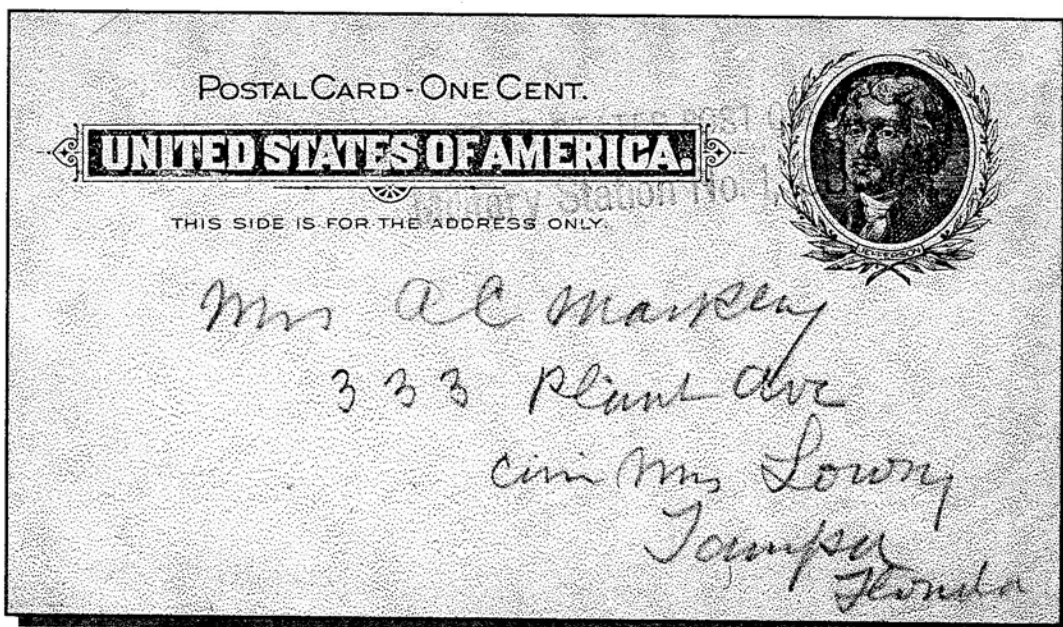 POSTAL CARD - ONE CENT.
UNITED STATES OF AMERICA.
Military Station No. 1,
THIS SIDE IS FOR THE ADDRESS ONLY.
JEFFERSON
Mrs A C
333 Plant Ave
Mrs Lowry
Tampa
Florida